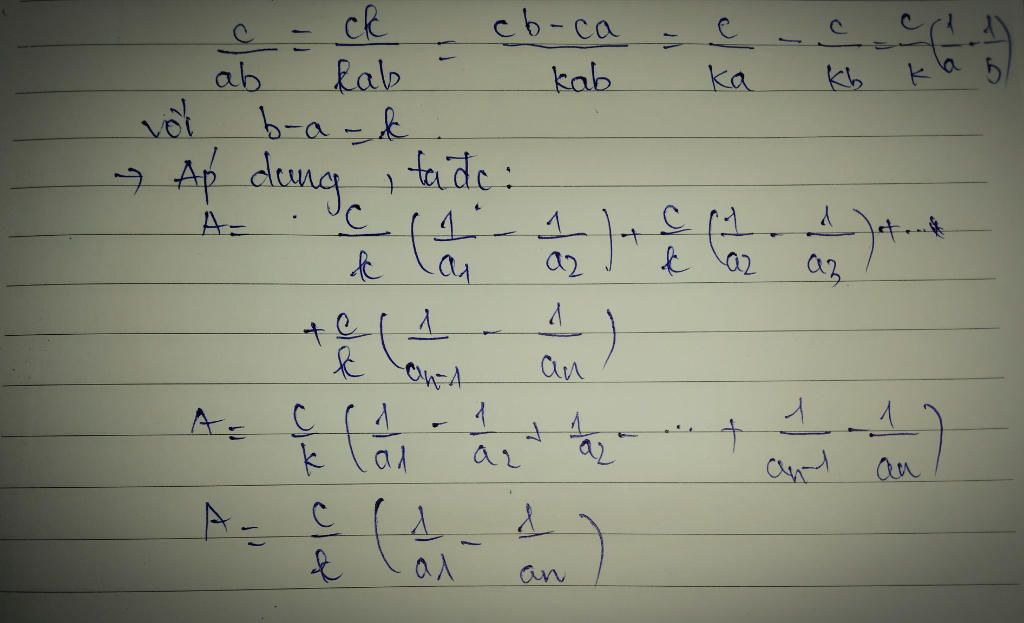 c/ab = ck/kab = cb-ca/kab = c/ka - c/kb = c/k (1/a - 1/b)
với b-a = k.
→ Áp dụng, ta đc:
A = c/k (1/a1 - 1/a2) + c/k (1/a2 - 1/a3) + ...
+ c/k (1/an-1 - 1/an)
A = c/k (1/a1 - 1/a2 + 1/a2 - ... + 1/an-1 - 1/an)
A = c/k (1/a1 - 1/an)